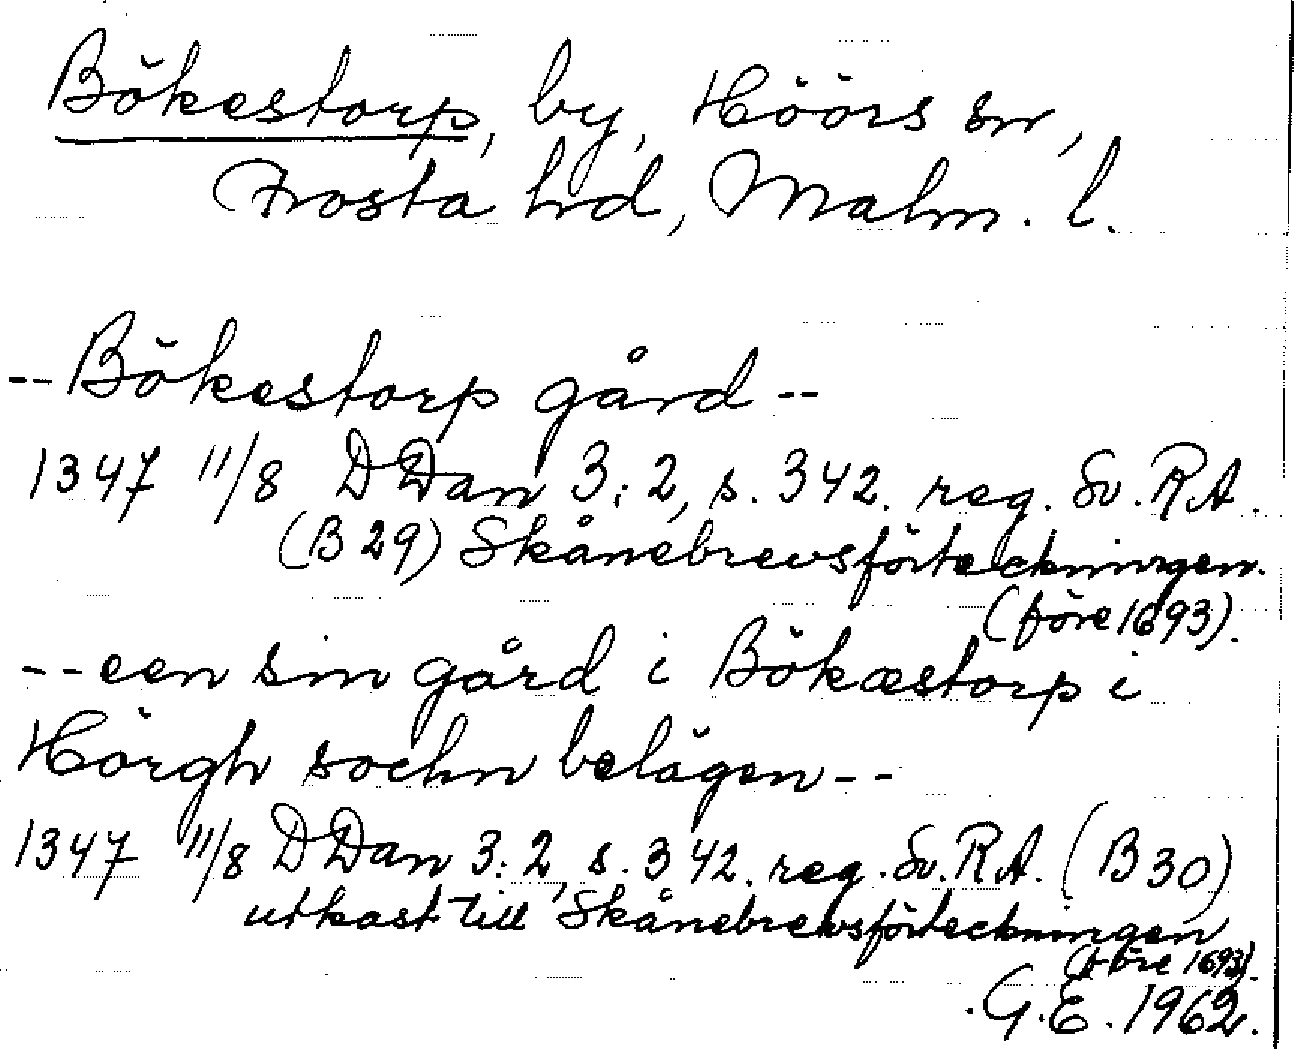 Bökestorp, by, Höörs sn,
Frosta hd, Malm. l.
-- Bökestorp gård --
1347 11/8 DDan 3:2, s. 342. reg. Sv. RA.
(B 29) Skånebrevsförteckningen.
(före 1693).
-- een sin gård i Bökæstorp i
Hörgh sochn belägen --
1347 11/8 DDan 3:2, s. 342. reg. Sv. RA. (B 30)
utkast till Skånebrevsförteckningen
(före 1693).
G.E. 1962.